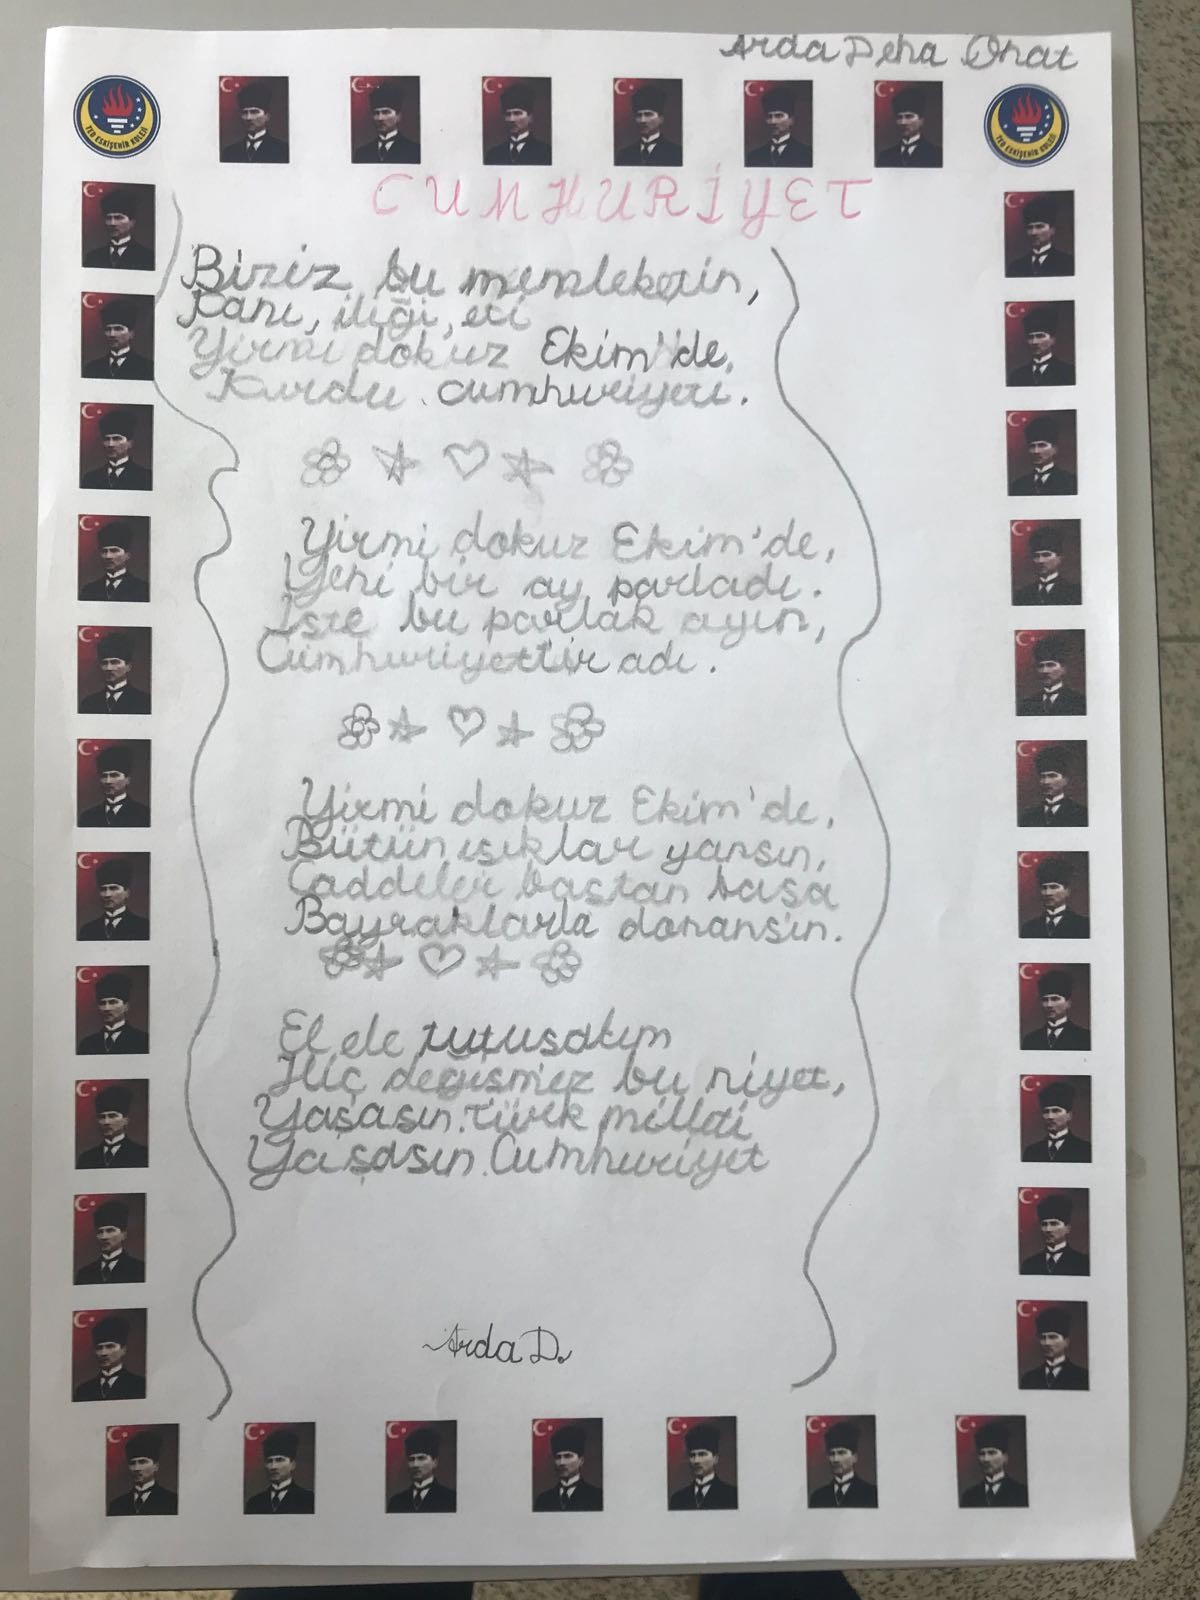 Arda Deha Onat
TED ESKİŞEHİR KOLEJİ
TED ESKİŞEHİR KOLEJİ
CUMHURİYET
Biziz bu memleketin,
Kanı, iliği, eti
Yirmi dokuz Ekim'de,
Kurdu cumhuriyeti.
Yirmi dokuz Ekim'de,
Yeni bir ay parladı.
İşte bu parlak ayın,
Cumhuriyettir adı.
Yirmi dokuz Ekim'de,
Bütün ışıklar yansın,
Caddeler baştan başa
Bayraklarla donansın.
El ele tutuşalım
Hiç değişmez bu niyet,
Yaşasın Türk milleti
Yaşasın Cumhuriyet
Arda D.